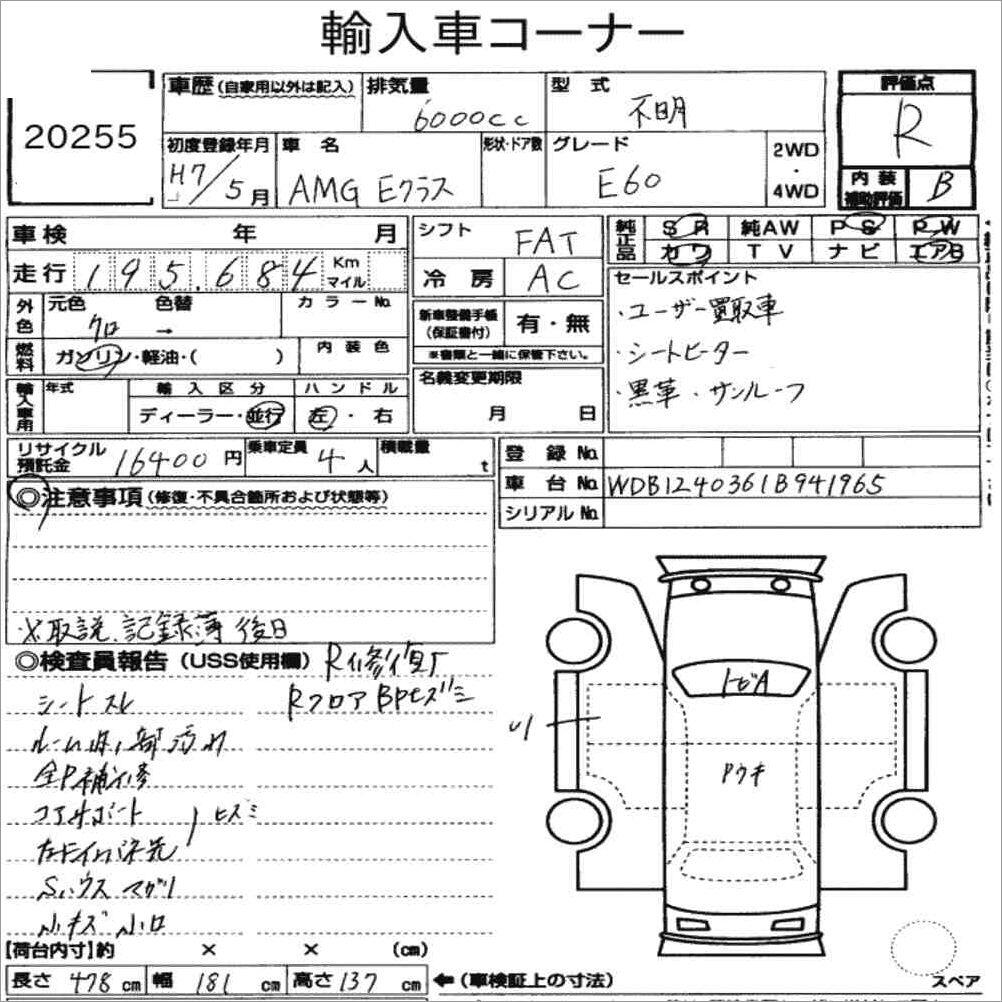 輸入車コーナー
20255
車歴(自家用以外は記入)
排気量
6000cc
型式
不明
評価点
R
初度登録年月
H7/5月
車名
AMG Eクラス
形状・ドア数
グレード
E60
2WD
・
4WD
内装
補助評価
B
車検 年 月
走行 195.684 Km マイル
シフト
FAT
冷房
AC
純正品
SR 純AW PS PW
カワ TV ナビ エアB
外色
元色
クロ
色替
→
カラーNo.
燃料
ガソリン・軽油・( )
内装色
新車整備手帳
(保証書付)
有・無
※書類と一緒に保管下さい。
セールスポイント
・ユーザー買取車
・シートヒーター
・黒革・サンルーフ
輸入車用
年式
輸入区分
ディーラー・並行
ハンドル
左・右
名義変更期限
月 日
リサイクル
預託金
16400円
乗車定員
4人
積載量
t
登録No.
車台No. WDB1240361B941965
シリアルNo.
◎注意事項(修復・不具合箇所および状態等)
※取説、記録簿後日
◎検査員報告(USS使用欄)
R修復
シートスレ
RフロアBPヒズミ
ルーム内
全P補修
コアサポート
ヒズミ
Sハウスマガリ
小キズ小凹
トビA
Pウキ
【荷台内寸】約 × × (cm)
長さ 478cm 幅 181cm 高さ 137cm ←(車検証上の寸法)
スペア